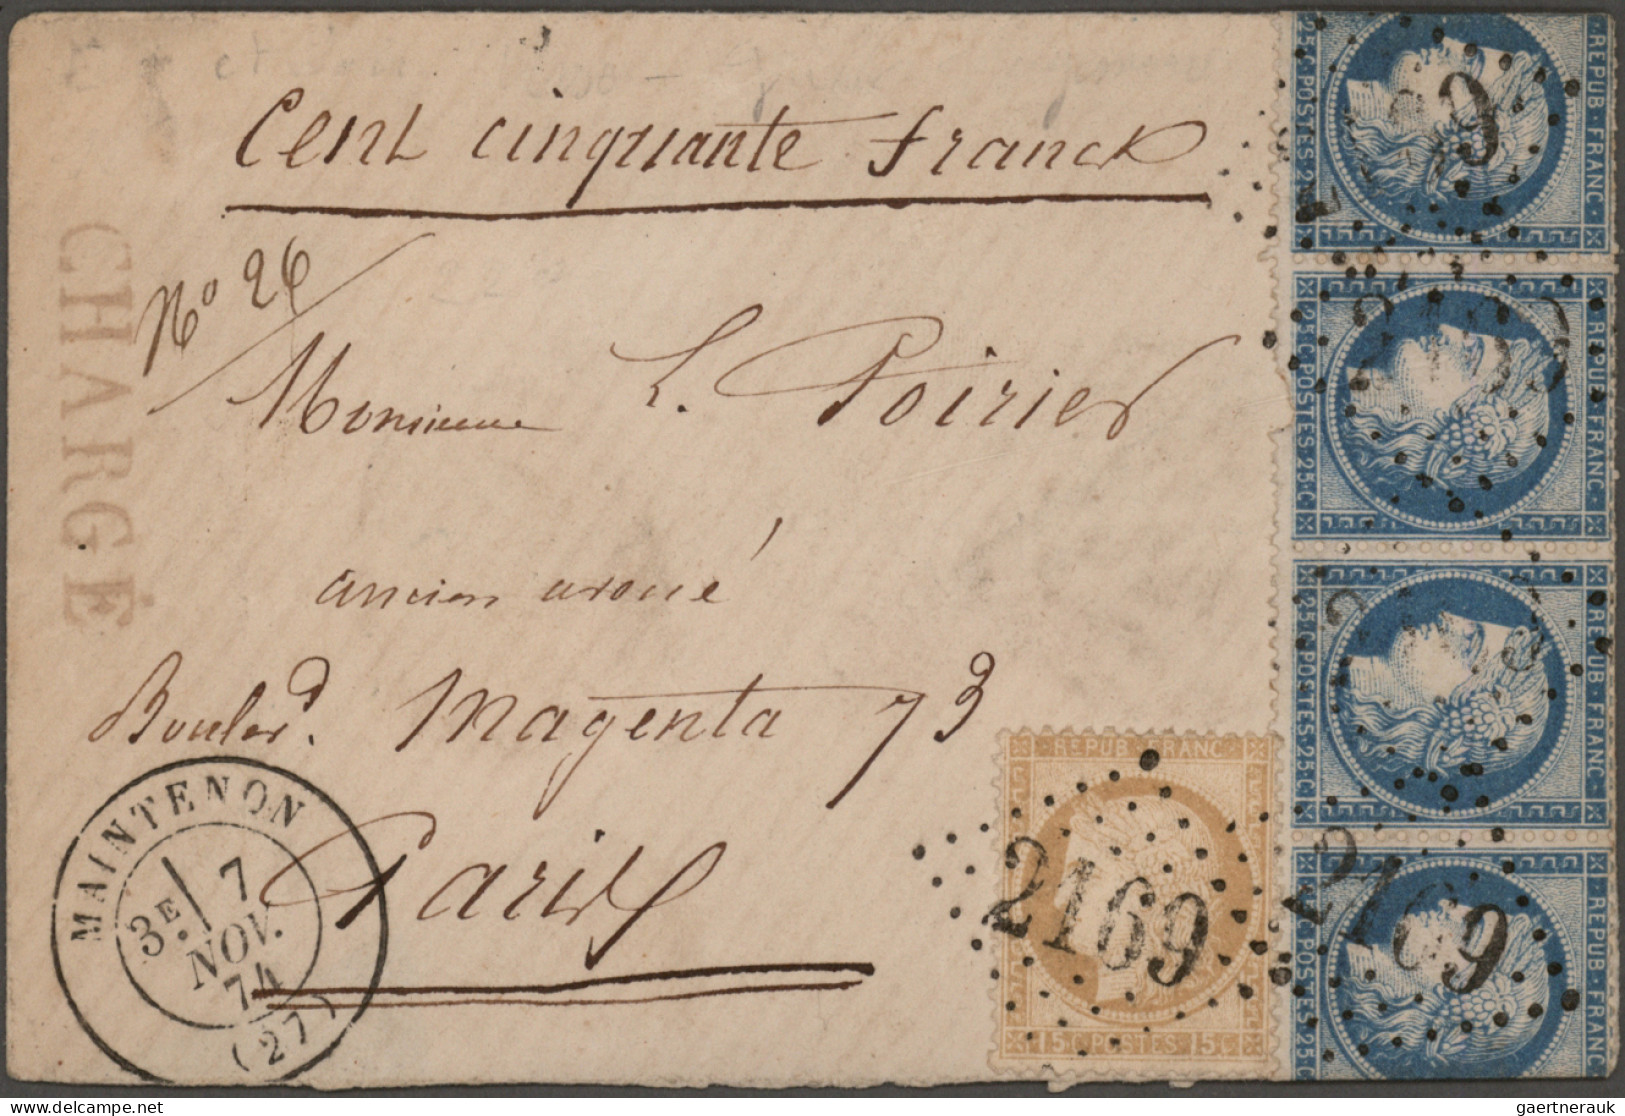 Cent cinquante francs
No 26
CHARGÉ
Monsieur L. Poirier
ancien avoué
Boulevd. Magenta 73
Paris
MAINTENON
3E 7
NOV.
74
(27)
REPUB FRANC
15c POSTES 15c
2169
REPUB·FRANC·
25c·POSTES·25c
REPUB·FRANC·
25c·POSTES·25c
REPUB·FRANC·
25c·POSTES·25c
REPUB·FRANC
25c·POSTES·25c
2169
delcampe.net
gaertnerauk